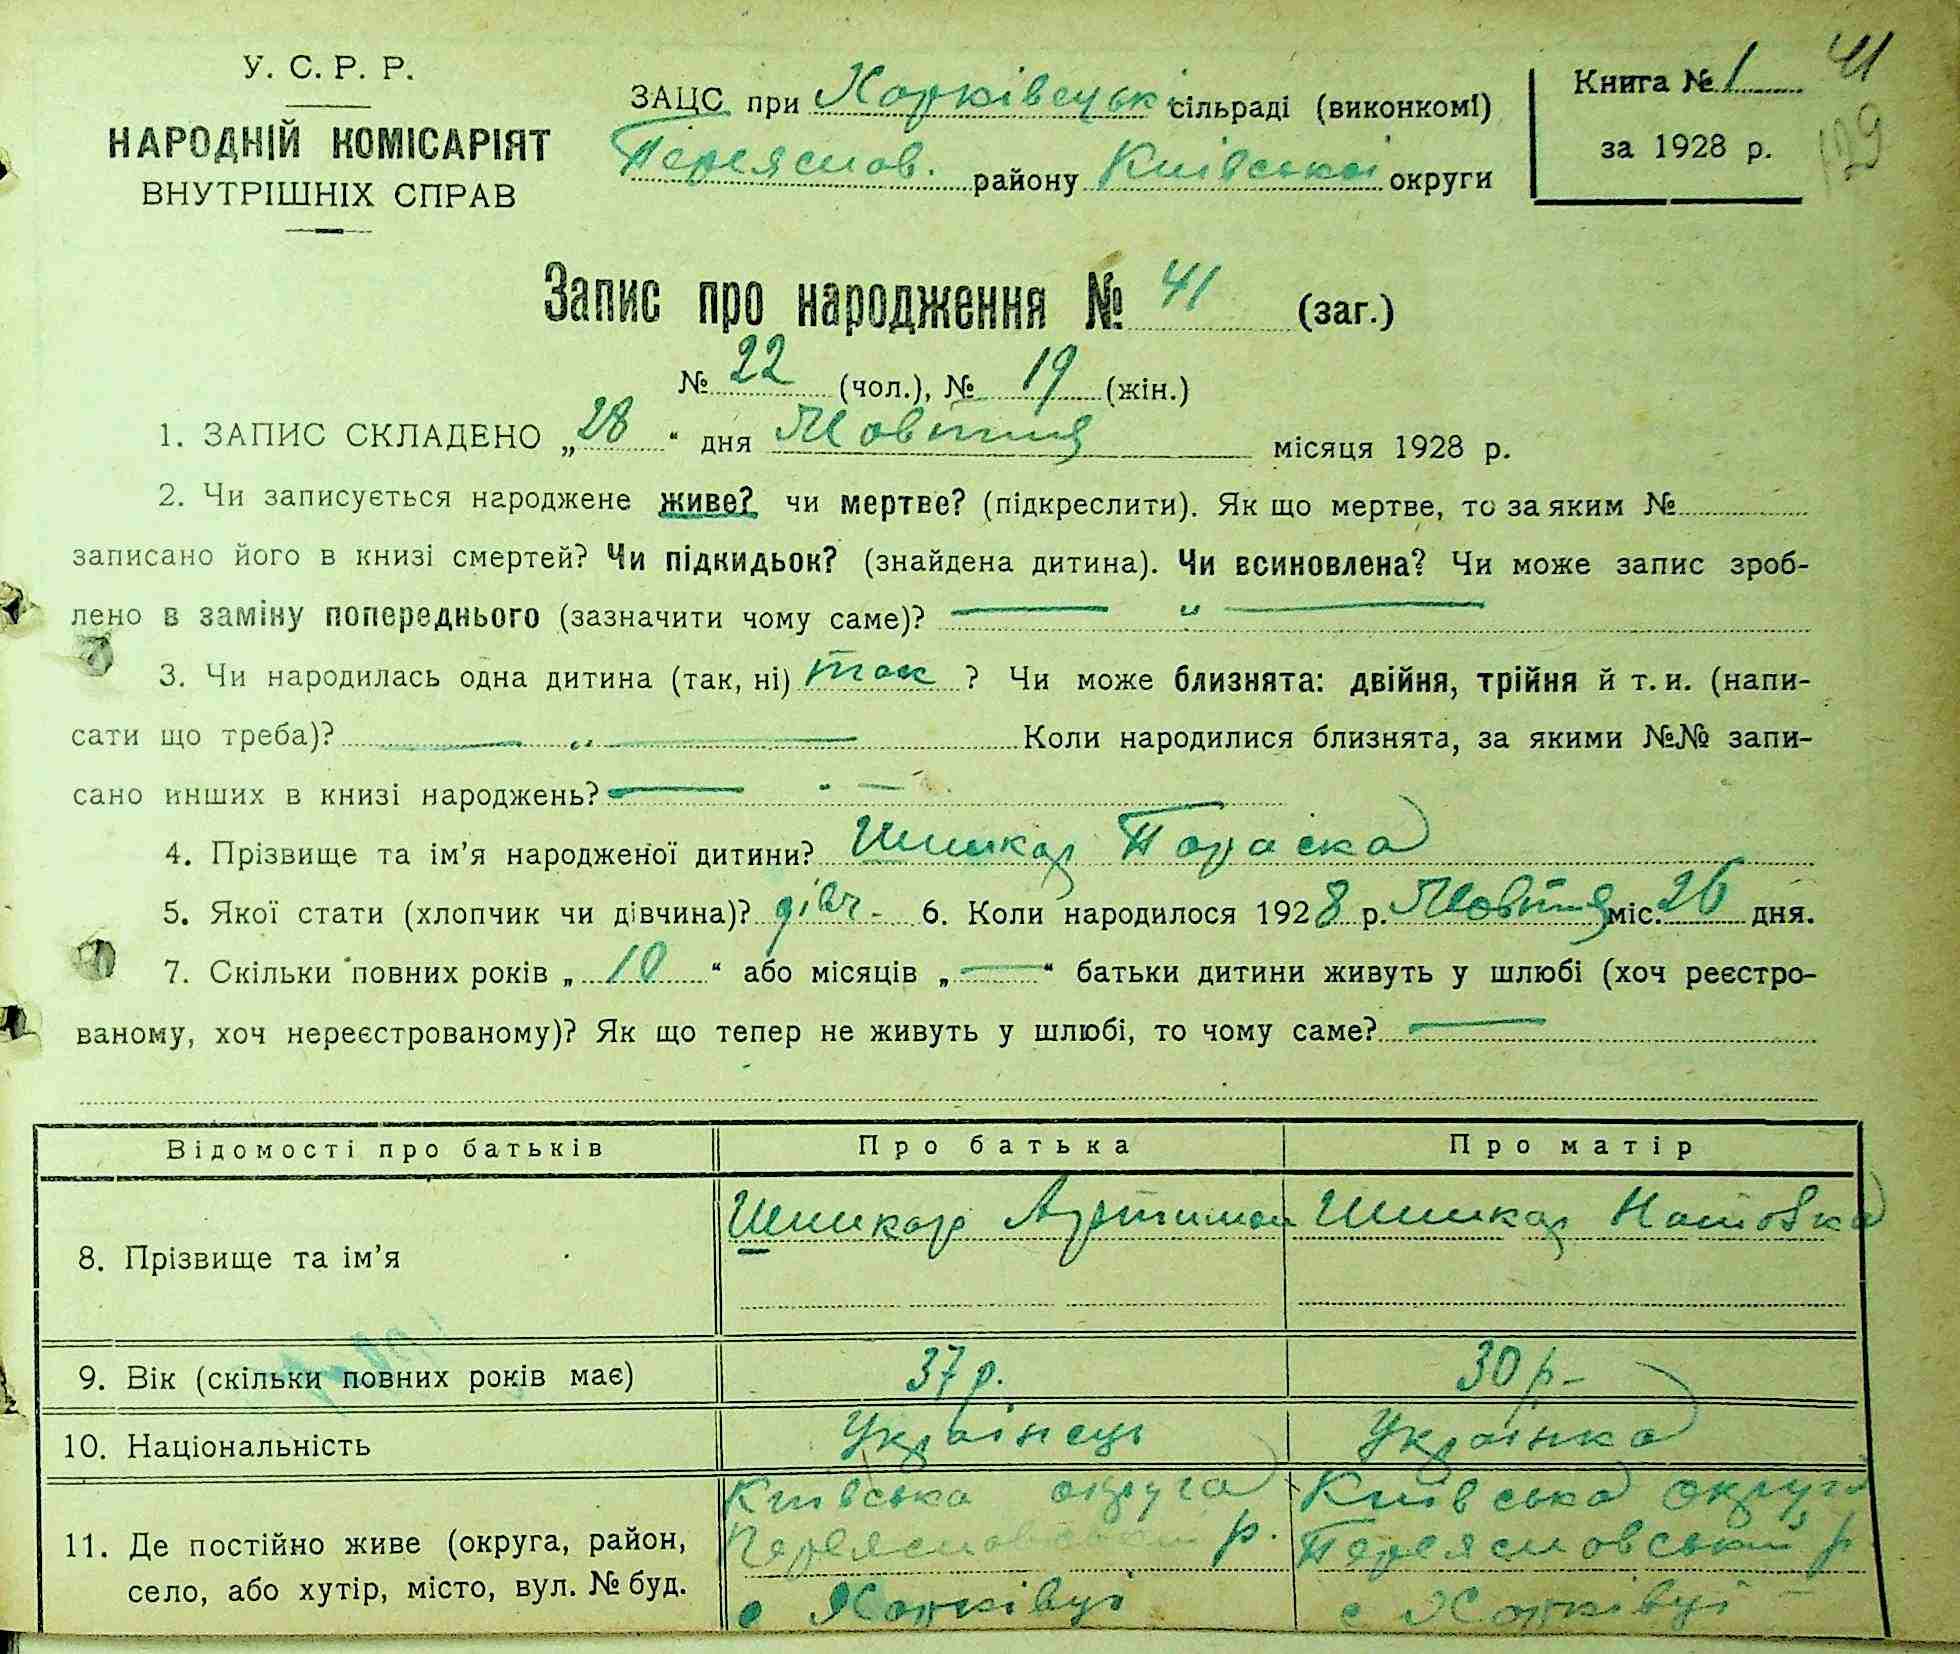 У. С. Р. Р.
НАРОДНІЙ КОМІСАРІЯТ
ВНУТРІШНІХ СПРАВ
ЗАЦС при Харківецькі сільраді (виконкомі)
Переяслов. району Київської округи
Книга № 1
за 1928 р.
41
129
Запис про народження № 41 (заг.)
№ 22 (чол.), № 19 (жін.)
1. ЗАПИС СКЛАДЕНО „28“ дня Жовтня місяця 1928 р.
2. Чи записується народжене живе? чи мертве? (підкреслити). Як що мертве, то за яким №
записано його в книзі смертей? Чи підкидьок? (знайдена дитина). Чи всиновлена? Чи може запис зроб-
лено в заміну попереднього (зазначити чому саме)? — „ —
3. Чи народилась одна дитина (так, ні) так ? Чи може близнята: двійня, трійня й т. и. (напи-
сати що треба)? — „ — Коли народилися близнята, за якими №№ запи-
сано инших в книзі народжень? — „ —
4. Прізвище та ім’я народженої дитини? Шишкар Параска
5. Якої стати (хлопчик чи дівчина)? дівч- 6. Коли народилося 1928 р. Жовтня міс. 26 дня.
7. Скільки повних років „ 10 “ або місяців „ — “ батьки дитини живуть у шлюбі (хоч реєстро-
ваному, хоч нереєстрованому)? Як що тепер не живуть у шлюбі, то чому саме? —
Відомості про батьків Про батька Про матір
8. Прізвище та ім’я Шишкар Шишкар
9. Вік (скільки повних років має) 37 р. 30 р-
10. Національність Українець Українка
11. Де постійно живе (округа, район, село, або хутір, місто, вул. № буд. Київська округа Київська округа
Переясловський р. Переясловський р
с Харківці с Харківці